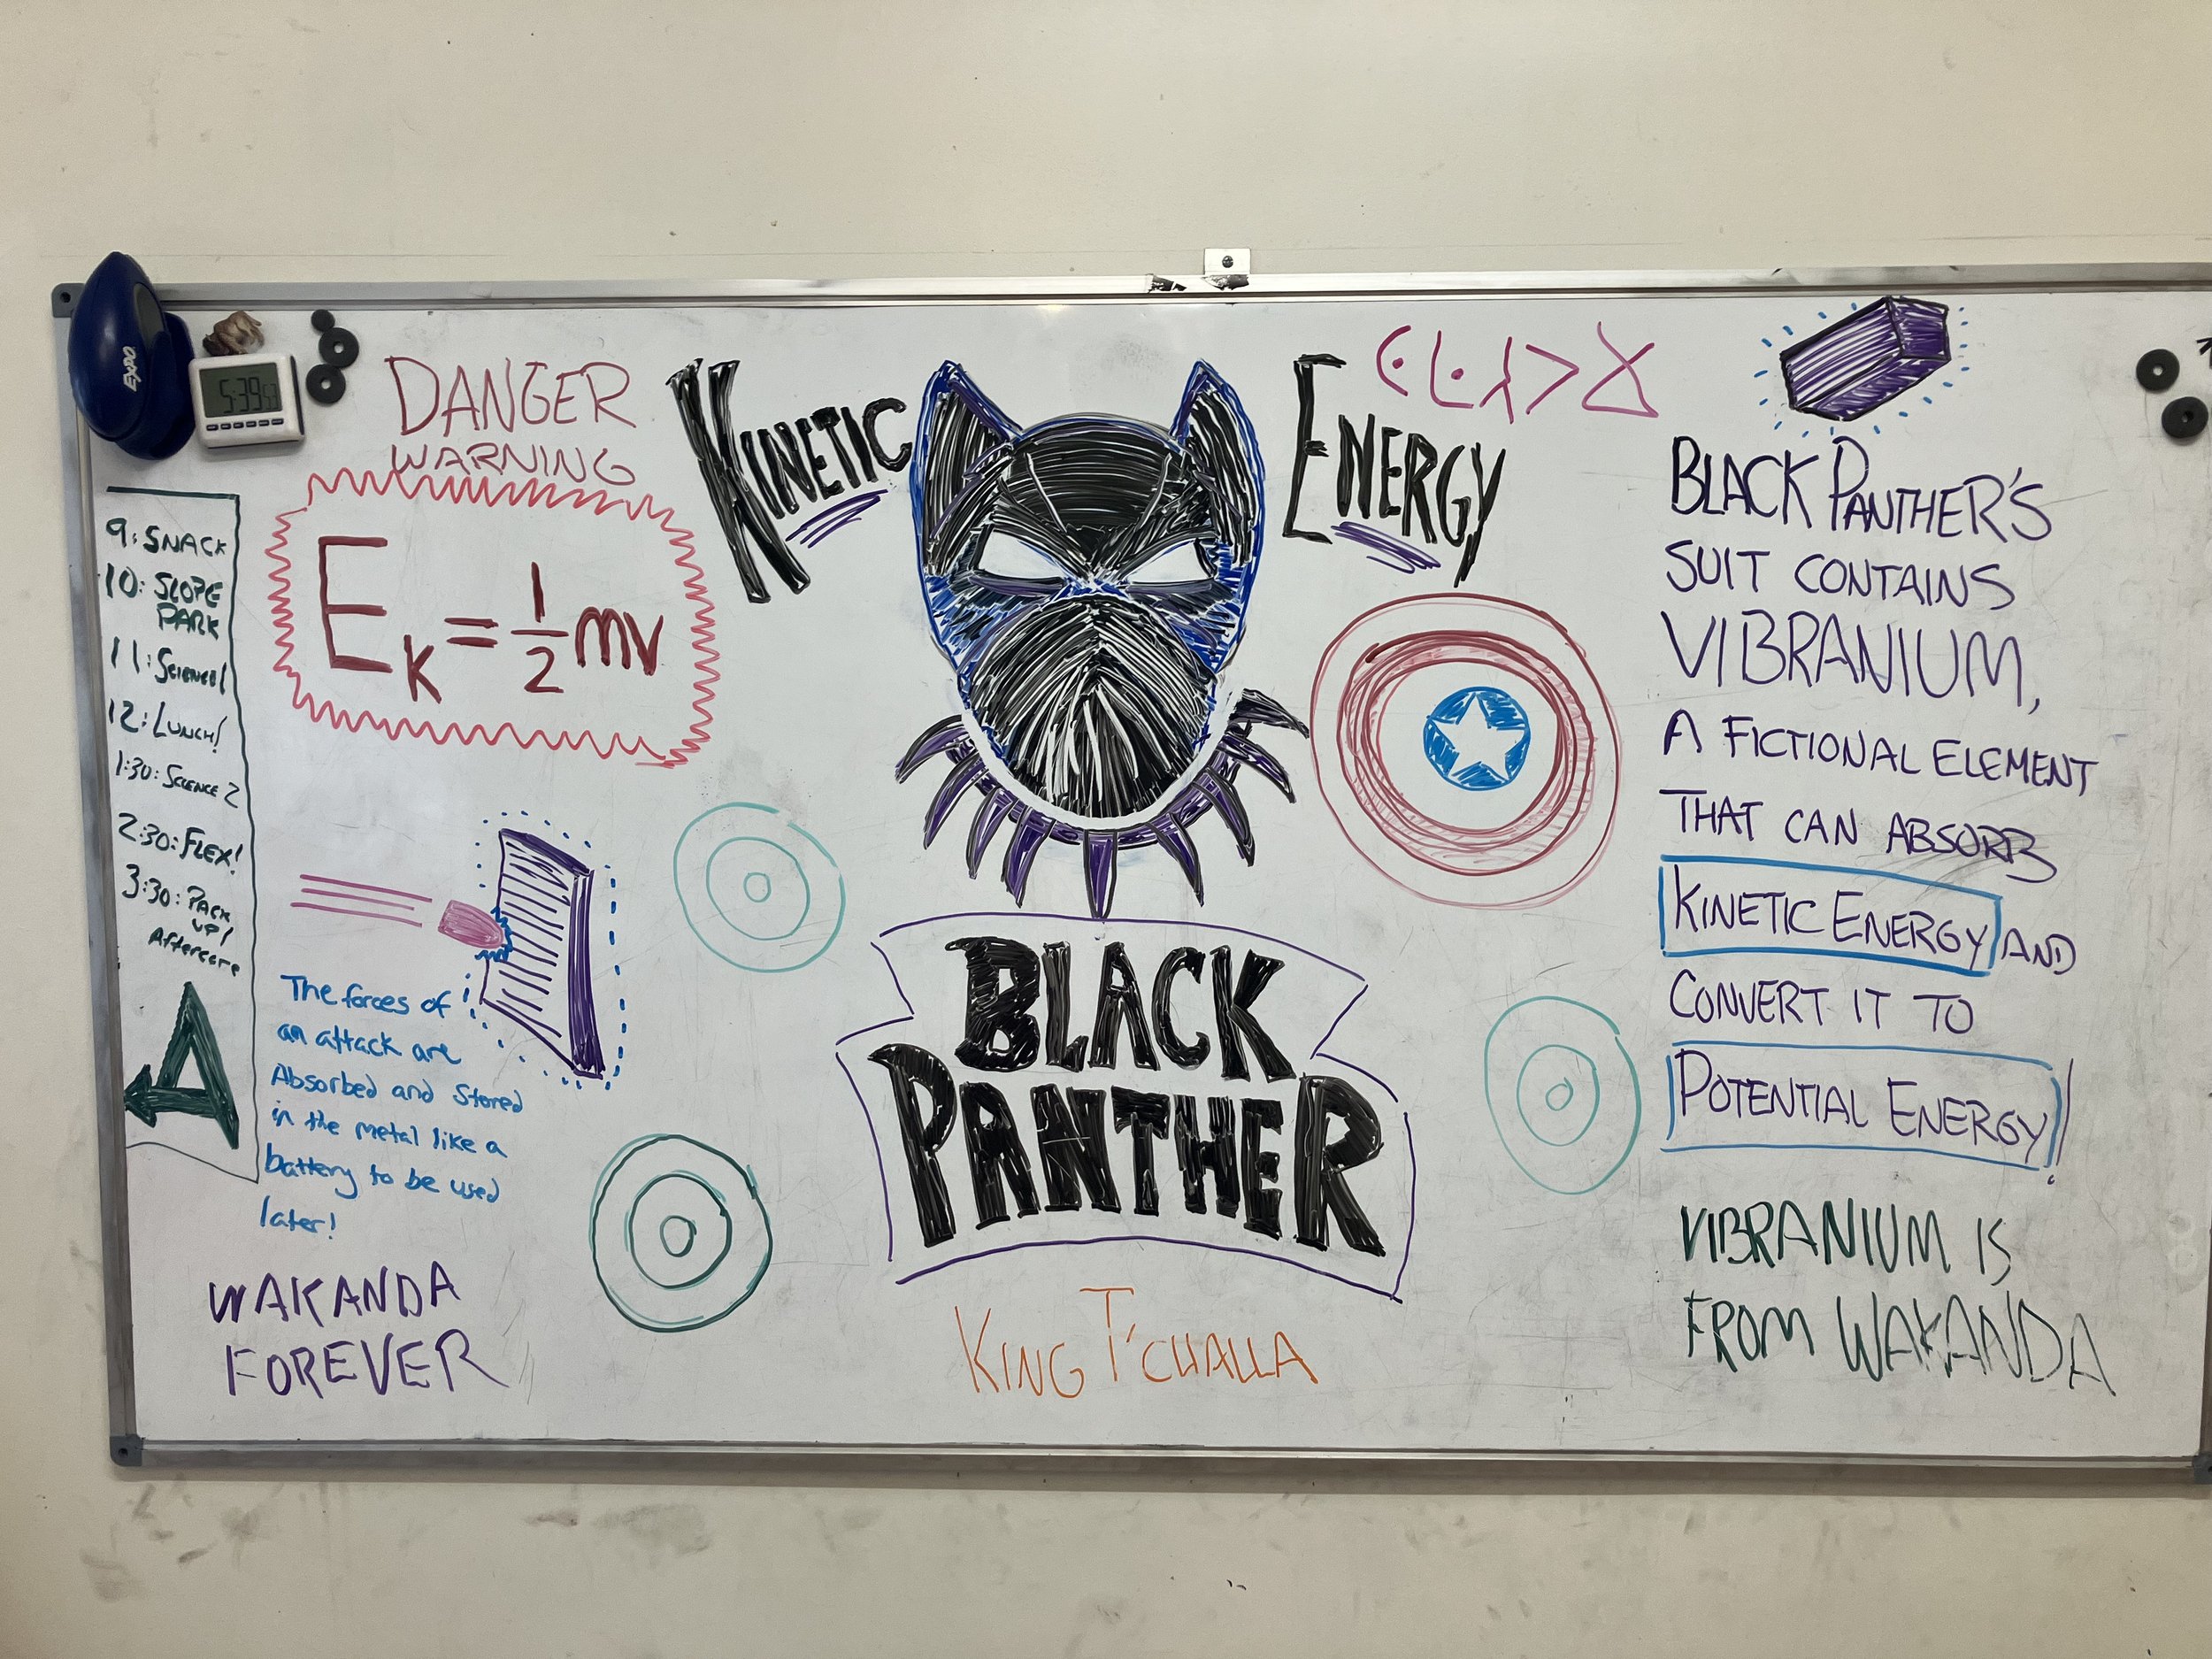 EXPO
5:39
DANGER
WARNING
E_K = 1/2 mv
9: SNACK
10: SLOPE
PARK
11: SCIENCE!
12: LUNCH!
1:30: SCIENCE 2
2:30: FLEX!
3:30: PACK
UP!
Aftercare
A
The forces of
an attack are
Absorbed and Stored
in the metal like a
battery to be used
later!
WAKANDA
FOREVER
KINETIC ENERGY
BLACK
PANTHER
KING T'CHALLA
BLACK PANTHER'S
SUIT CONTAINS
VIBRANIUM,
A FICTIONAL ELEMENT
THAT CAN ABSORB
KINETIC ENERGY AND
CONVERT IT TO
POTENTIAL ENERGY!
VIBRANIUM IS
FROM WAKANDA